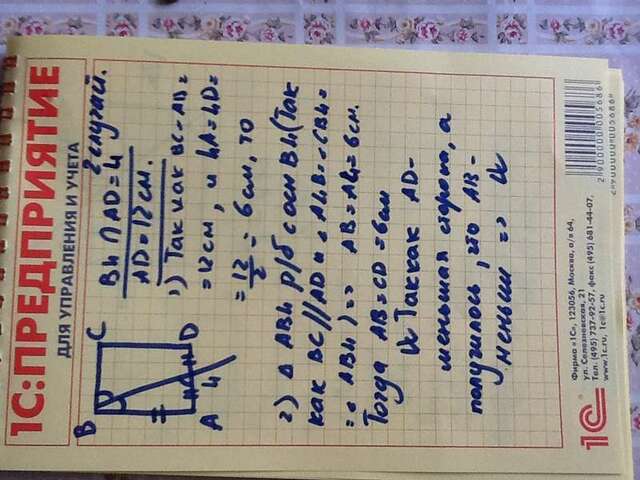 1С:ПРЕДПРИЯТИЕ
ДЛЯ УПРАВЛЕНИЯ И УЧЕТА
2 случай.
B C
A 4 D
B4 ∩ AD = 4
AD = 12 см.
1) Так как BC = AD =
= 12 см, и 4A = 4D =
= 12/2 = 6 см, то
2) △ AB4 р/б с осн B4 (Так
как BC // AD и ∠A4B = ∠CB4 =
= ∠AB4) => AB = A4 = 6 см.
Тогда AB = CD = 6 см
Так как AD –
меньшая сторона, а
получилось, что AB –
меньш =>
1С
®
Фирма «1С», 123056, Москва, а/я 64,
ул. Селезневская, 21
Тел. (495) 737-92-57, факс (495) 681-44-07,
www.1c.ru, 1c@1c.ru
2900000005686